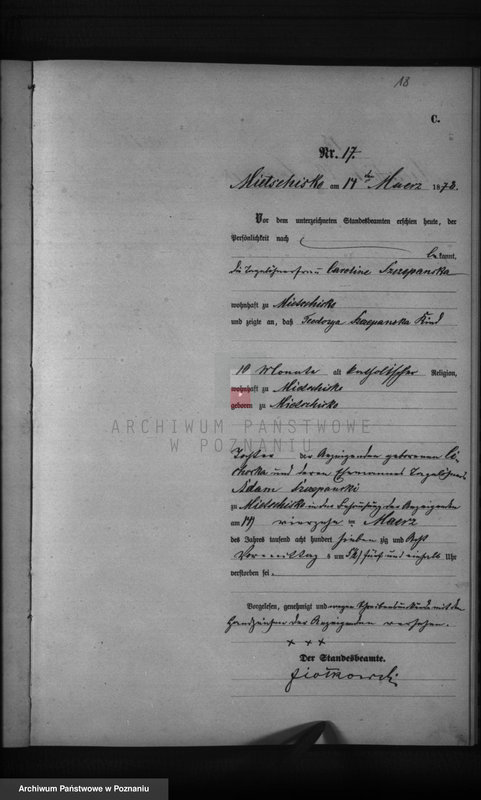 18
C.
Nr. 17.
Mietschisko am 14ten Maerz 1878.
Vor dem unterzeichneten Standesbeamten erschien heute, der
Persönlichkeit nach
bekannt,
die Tagelöhnerfrau Caroline Szczepanska
wohnhaft zu Mietschisko
und zeigte an, daß Teodozya Szczepanska Kind
10 Monate alt katholischer Religion,
wohnhaft zu Mietschisko
geboren zu Mietschisko
ARCHIWUM PAŃSTWOWE
W POZNANIU
Tochter der Anzeigenden geborenen Ci-
choska und deren Ehemannes Tagelöhners
Adam Szczepanski
zu Mietschisko in der Behausung der Anzeigenden
am 14) vierzehn ten Maerz
des Jahres tausend acht hundert sieben zig und Acht
Vormittag s um 5½) fünf und einhalb Uhr
verstorben sei.
Vorgelesen, genehmigt und wegen Schreibensunkunde mit den
Handzeichen der Anzeigenden versehen.
+ + +
Der Standesbeamte.
Ziołkowski
Archiwum Państwowe w Poznaniu